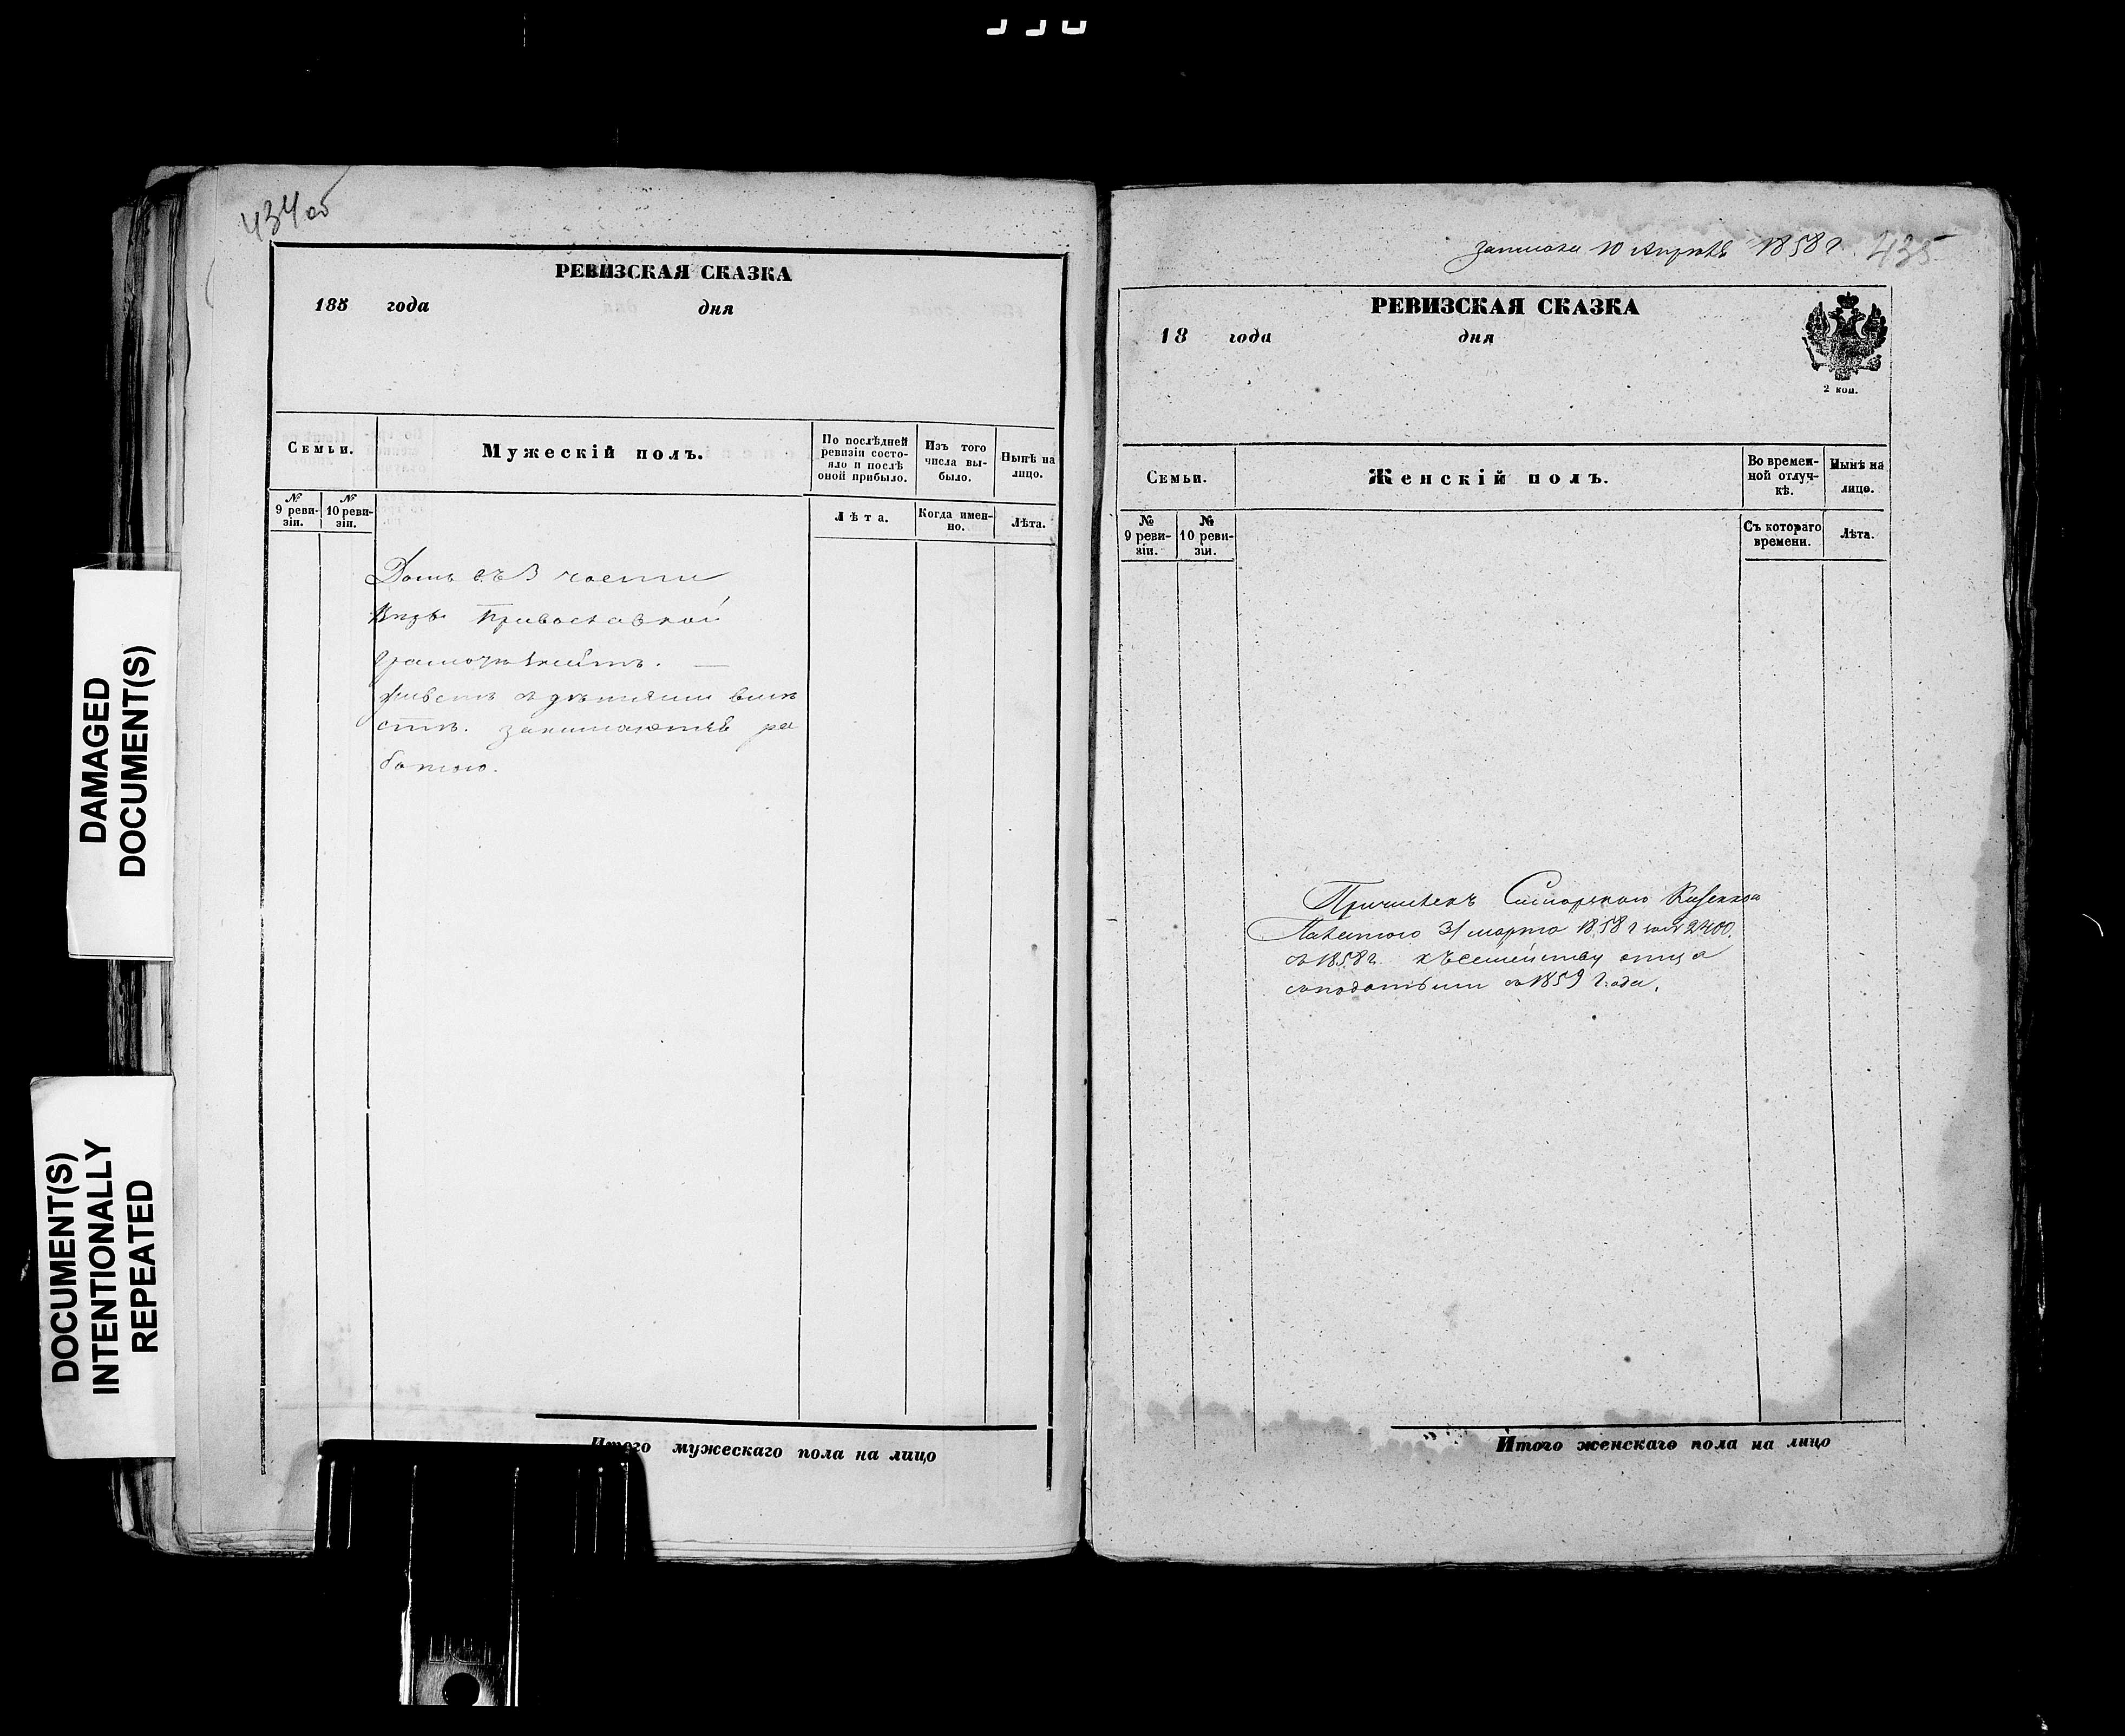 434 об
РЕВИЗСКАЯ СКАЗКА
185 года дня
Семьи.
Мужескій полъ.
По послѣдней ревизіи состояло и послѣ оной прибыло.
Изъ того числа выбыло.
Нынѣ на лицо.
№ 9 ревизіи.
№ 10 ревизіи.
Лѣта.
Когда именно.
Лѣта.
Домъ въ 3 части
Православной
живетъ съ дѣтьми вмѣ
стѣ. занимаются ра
ботою.
Итого мужескаго пола на лицо
записка 10 Апрѣля 1858 г. 435
РЕВИЗСКАЯ СКАЗКА
18 года дня
2 коп.
Семьи.
Женскій полъ.
Во временной отлучкѣ.
Нынѣ на лицо.
№ 9 ревизіи.
№ 10 ревизіи.
Съ котораго времени.
Лѣта.
Причисленъ
Палатою 31 марта 1858 г 2400.
съ 1858 г. къ семейству отца
съ податьми съ 1859 года.
Итого женскаго пола на лицо
DAMAGED
DOCUMENT(S)
DOCUMENT(S)
INTENTIONALLY
REPEATED